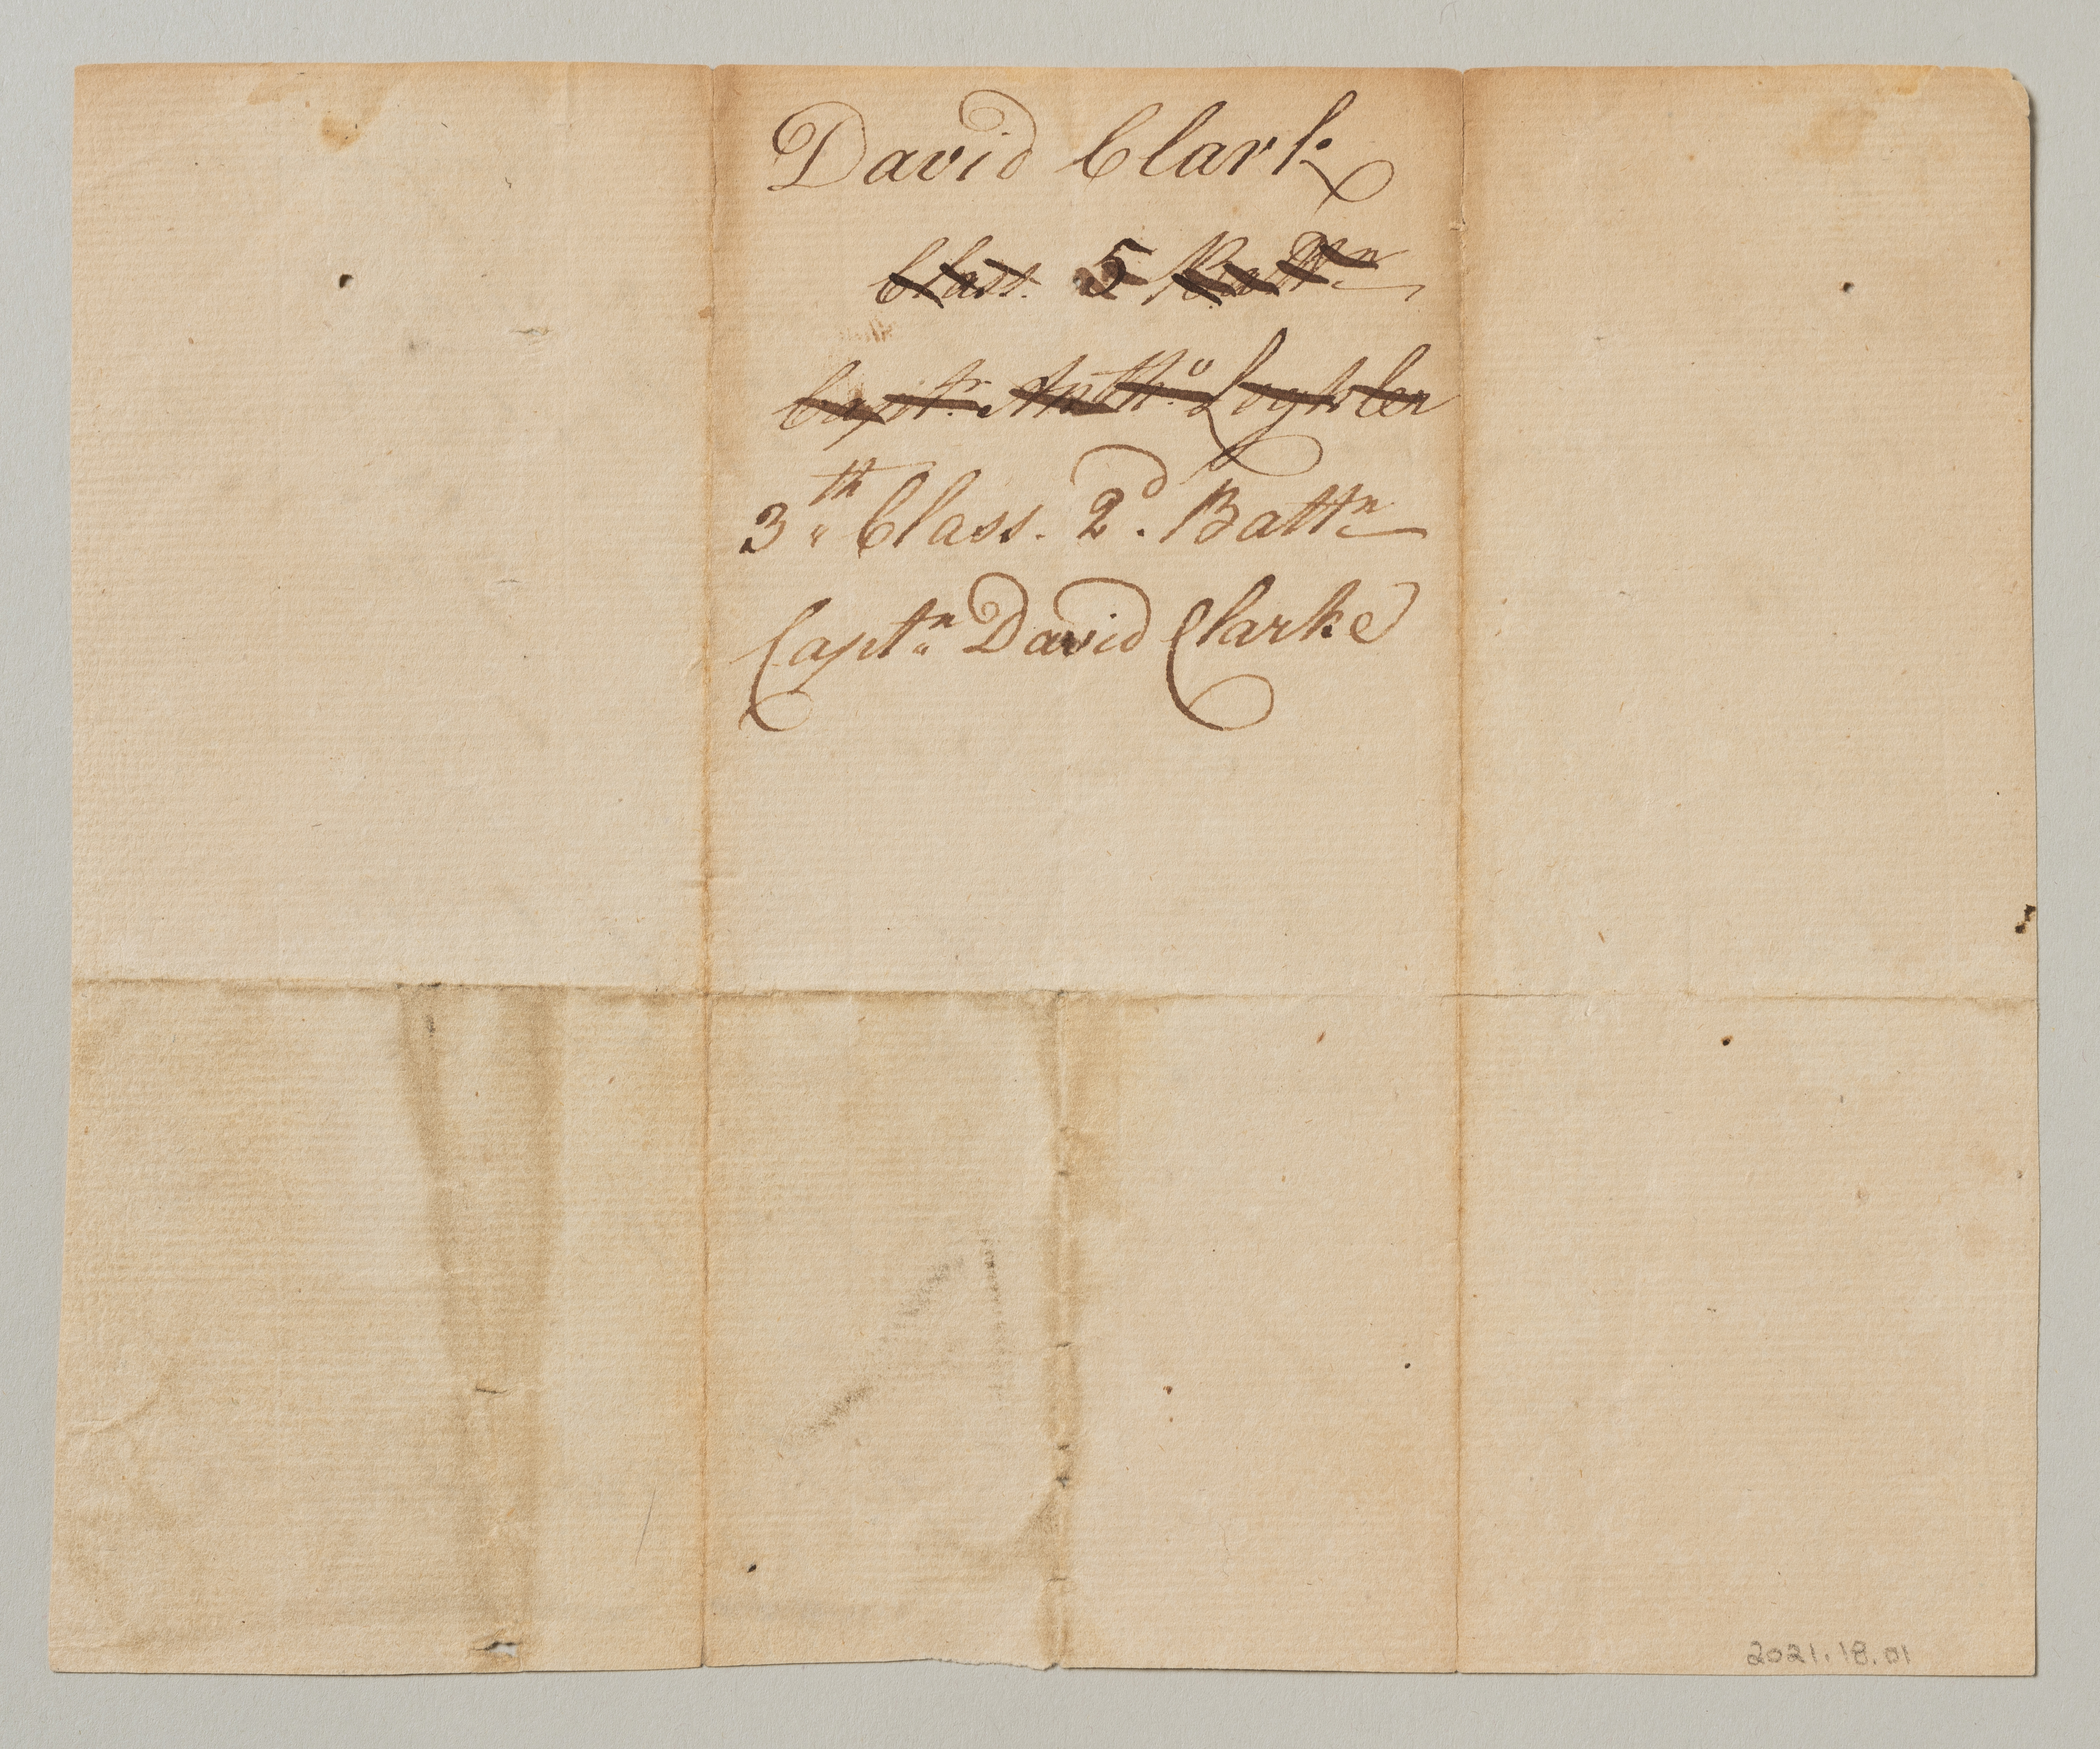 David Clark
Class. 5 Battn
Captn. Antho. Lightler
3th Class. 2d. Battn
Captn David Clarke
2021.18.01